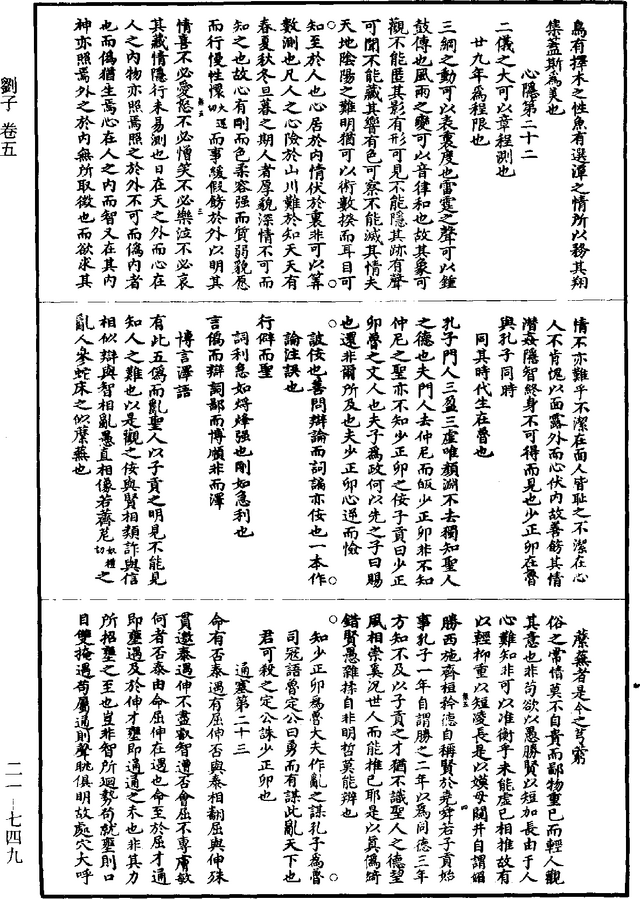 鳥有擇木之性魚有選潭之情所以務其翔
集蓋斯為美也
心隱第二十二
二儀之大可以章程測也
廿九年為程限也
三綱之動可以表衷度也雷霆之聲可以鍾
鼓傳也風雨之變可以音律和也故其象可
觀不能匿其影有形可見不能隱其跡有聲
可聞不能藏其響有色可察不能滅其情夫
天地陰陽之難明猶可以術數揆而耳目可
知至於人也心居於內情伏於裏非可以筭
數測也凡人之心險於山川難於知天天有
春夏秋冬旦暮之期人者厚貌深情不可而
知之也故心有剛而色柔容强而質弱貌愿
而行慢性懁而事緩假飾於外以明其
情喜不必愛怒不必憎笑不必樂泣不必哀
其藏情隱行未易測也日在天之外而心在
人之內物亦照焉照之於外不可而偽內者
也而偽猶生焉心在人之內而智又在其內
神亦照焉外之於內無所取徵也而欲求其
情不亦難乎不潔在面人皆恥之不潔在心
人不肯愧以面露外而心伏內故善飾其情
潛姦隱智終身不可得而見也少正卯在魯
與孔子同時
同其時代生在魯也
孔子門人三盈三虛唯顏淵不去獨知聖人
之德也夫門人去仲尼而皈少正卯非不知
仲尼之聖亦不知少正卯之佞子貢曰少正
卯魯之文人也夫子為政何以先之子曰賜
也還非爾所及也夫少正卯心逆而憸
詖佞也善問辯論而詞譎亦佞也一本作
論註誤也
行僻而堅
詞利急如焞烽强也剛如急利也
言僞而辯詞鄙而博順非而澤
博言澤語
有此五偽而亂聖人以子貢之明見不能見
知人之難也以是觀之佞與賢相類詐與信
相似辯與智相亂愚直相像若薺苨之
亂人參蛇床之似蘪蕪也
蘪蕪者是今之芎藭
俗之常情莫不自貴而鄙物重已而輕人觀
其意也非苟欲以愚勝賢以短加長由于人
心難知非可以准衡乎未能虛已相推故有
以輕抑重以短凌長是以嫫母闚井自謂媚
勝西施齊桓矜德自稱賢於堯舜若子貢始
事孔子一年自謂勝之二年以為同德三年
方知不及以子貢之才猶不識聖人之德望
風相崇奚況世人而能推已耶是以真偽綺
錯賢愚雜揉自非明哲莫能辨也
知少正卯為魯大夫作亂之謀孔子為魯
司冠語魯定公曰勇而有謀此亂天下也
君可殺之定公誅少正卯也
通塞第二十三
命有否泰遇有屈伸否與泰相翻屈與伸殊
貫遨泰遇伸不盡叡智遭否會屈不專膚敏
何者否泰由命屈伸在遇也命至於屈才通
即壅遇及於伸才壅即通通之來也非其力
所招壅之至也豈非智所迴勢苟就壅則口
目雙掩遇苟屬通則聲眺俱明故處穴大呼
劉子 卷五
二一—七四九